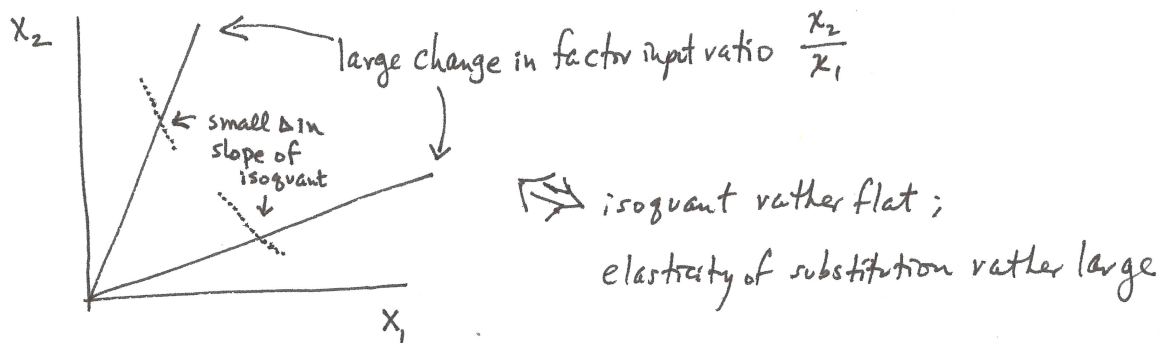 X₂
large change in factor input ratio x₂/x₁
small Δ in
slope of
isoquant
⇒ isoquant rather flat ;
elasticity of substitution rather large
X₁